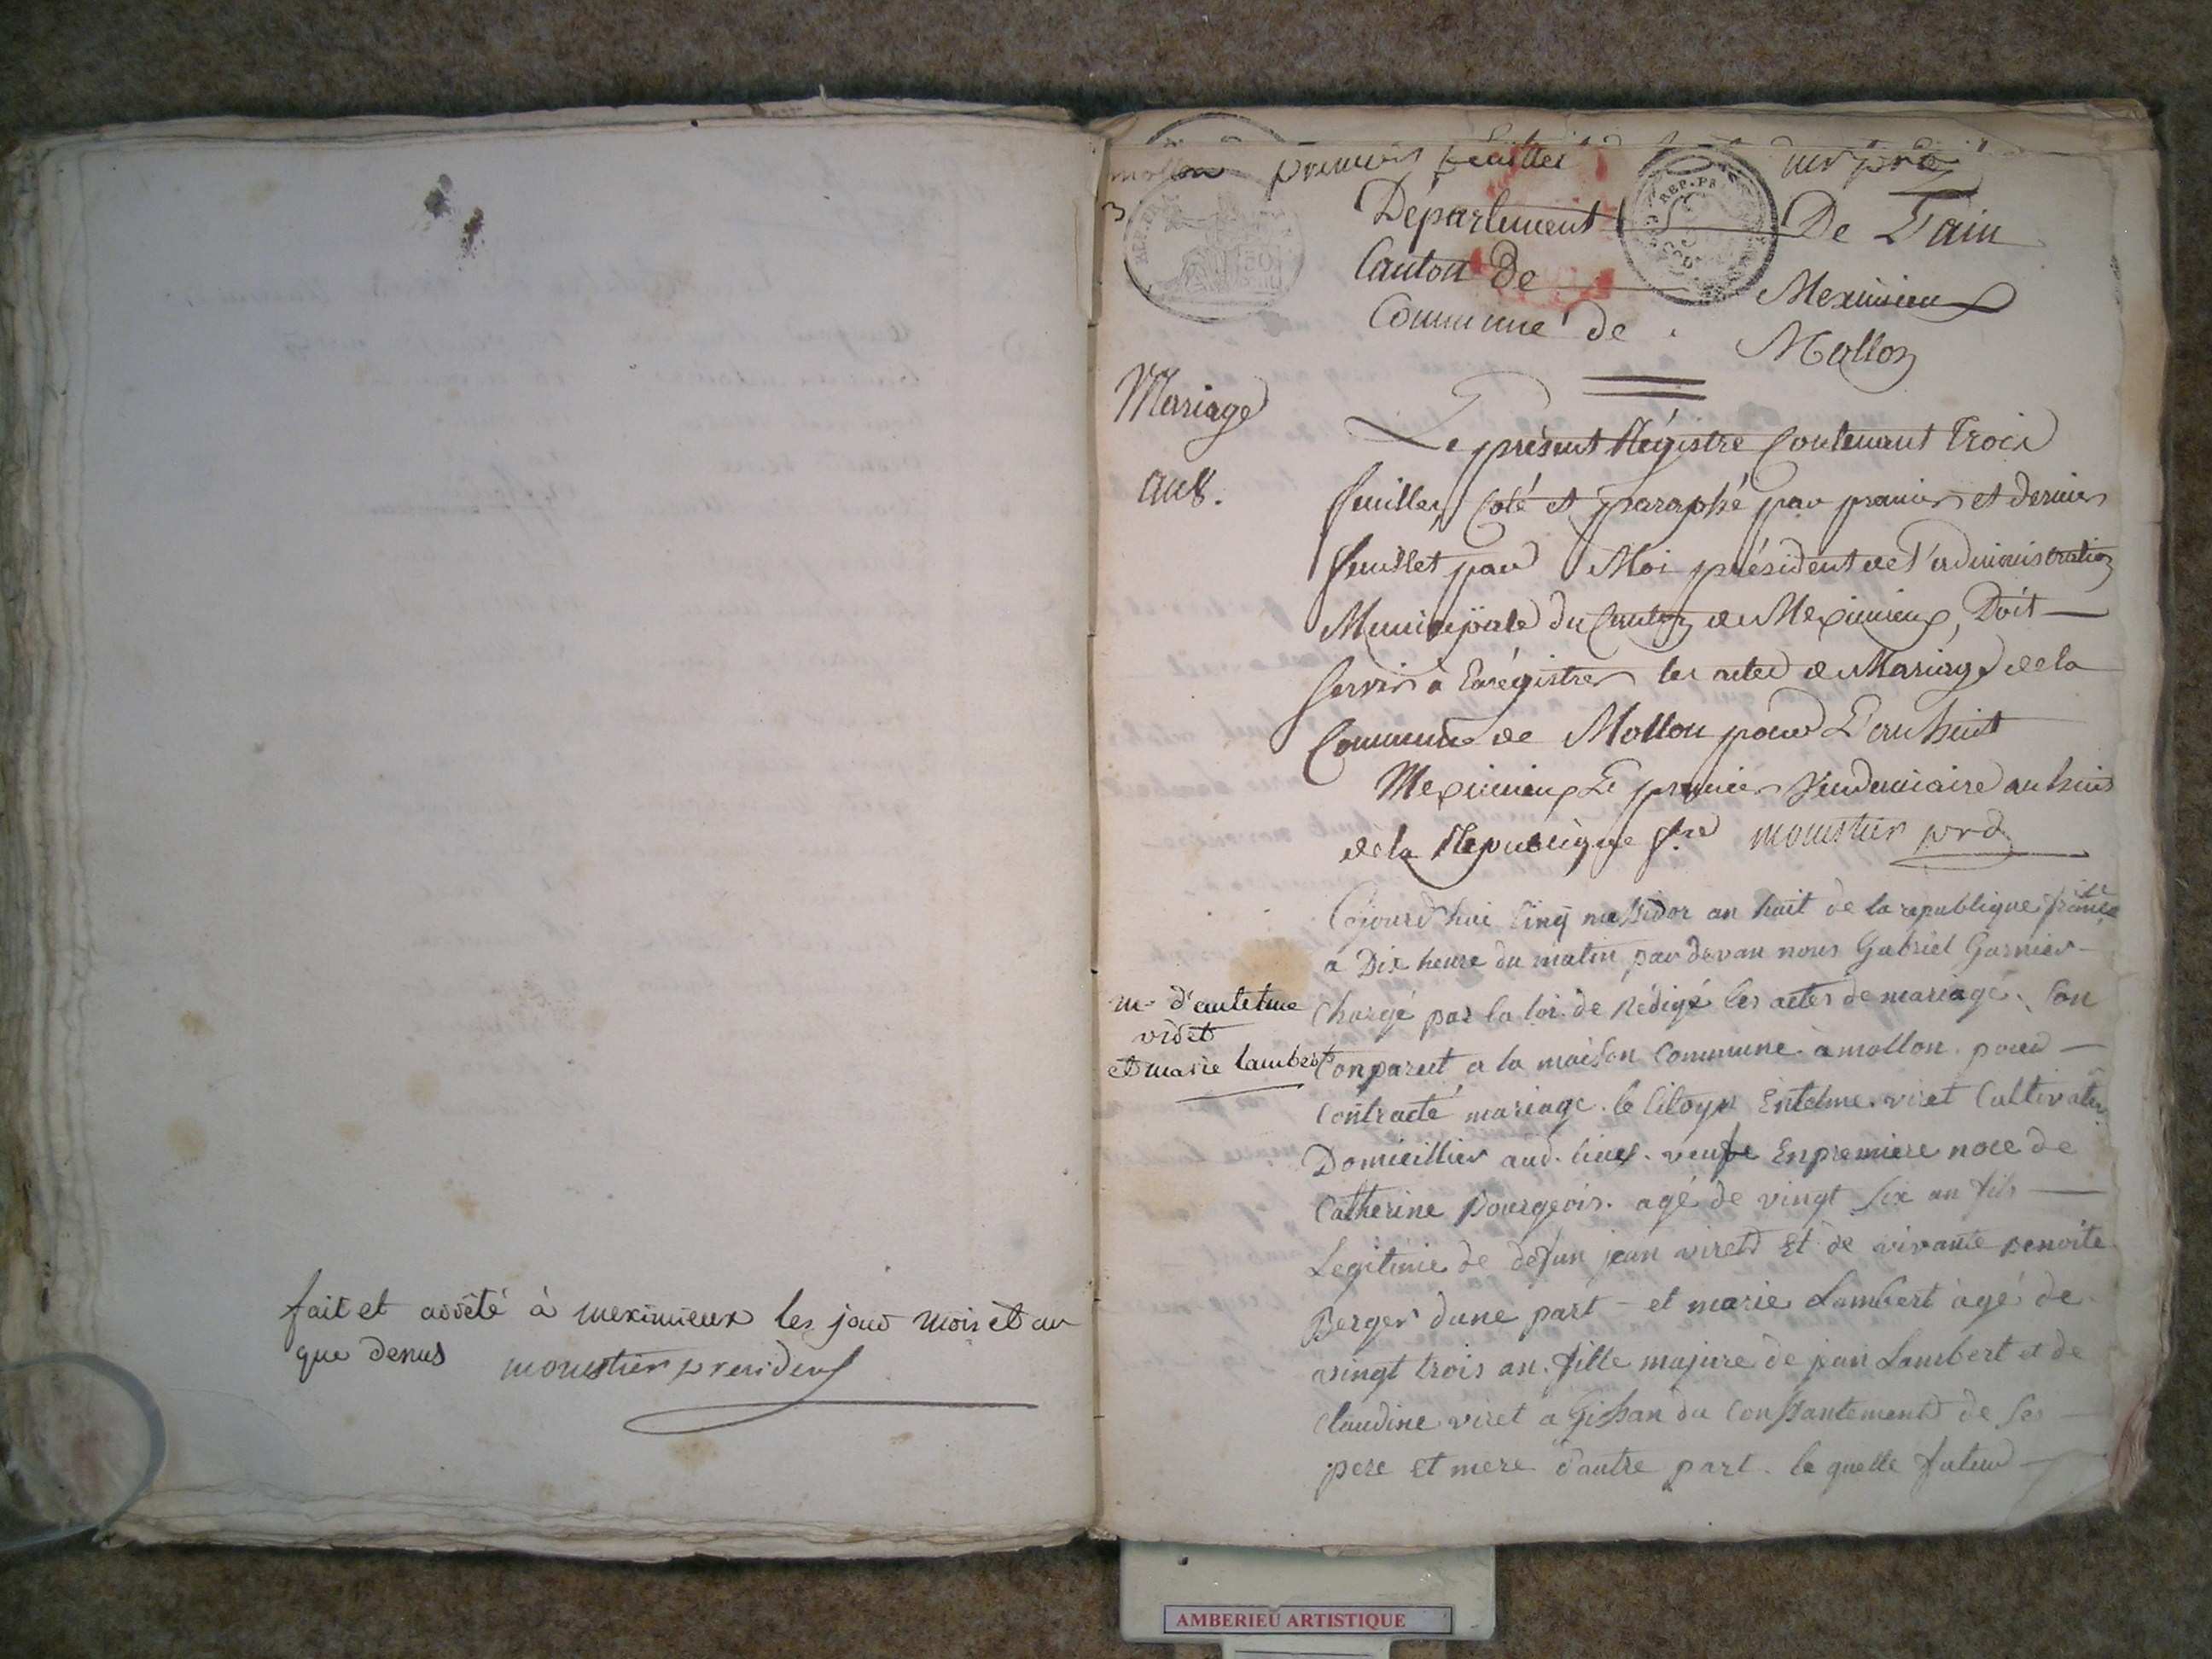 fait et arrêté à meximieux les jour mois et an
que denus moustier president
mollon premier feuillet
REP. FRA
Département De L'ain
Canton De Meximieux
Commune de Mollon
Mariage
an 8.
Le present Régistre Contenant trois
feuillets Coté et paraphé par premier et dernier
feuillet par Moi président de l'administration
Municipale du Canton de Meximieux, Doit
servir à Enrégistrer les actes de Mariage de la
Commune de Mollon pour L'an huit
Meximieux Le premier Vendemiaire an huit
de la Republique fse moustier prd
Cejourd'hui cinq messidor an huit de la republique française
à Dix heure du matin par devan nous Gabriel Garnier
chargé par la loi de Rédigé les actes de mariage. son
Conparut a la maison Commune à mollon pour
Contracté mariage. le Citoyen Entelme viret Cultivateur
Domicillier aud. lieux. veufve En premiere noce de
Catherine Bourgeois. agé de vingt six an fils
Legitimie de defun jean viret Et de vivante Benoite
Berger dune part et marie Lambert àgé de
vingt trois an. fille majure de jean Lambert et de
Claudine viret a Gissan du Conssantement de ses
pere Et mere d'autre part. le quelle futeur
m. d'antelme
viret
et marie lambert
AMBERIEU ARTISTIQUE